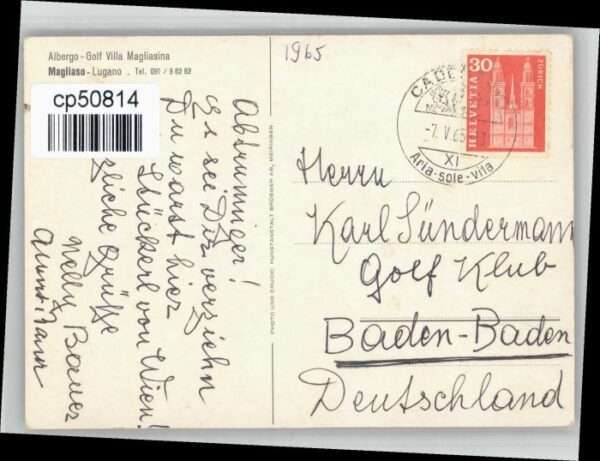 Albergo - Golf Villa Magliasina
Magliaso - Lugano . Tel. 091 / 9 62 62
cp50814
Abtrünniger!
Es sei Dir verziehn
Du warst hier
Stückerl von Wien!
zliche Grüsse
Nelly Bauer
PHOTO UND EMUDE: KUNSTANSTALT BRÜGGER AG, MEIRINGEN
1965
CADE
-7. V. 65
XI
Aria-sole-vita
30
HELVETIA
ZÜRICH
Herrn
Karl Sündermann
Golf Klub
Baden-Baden
Deutschland